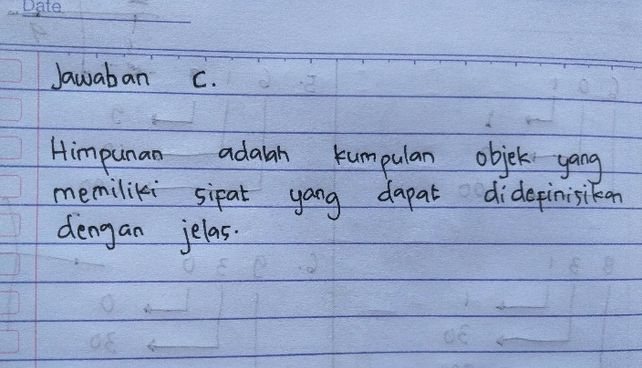 Date
Jawaban c.
Himpunan adalah kumpulan objek yang
memiliki sifat yang dapat didefinisikan
dengan jelas.